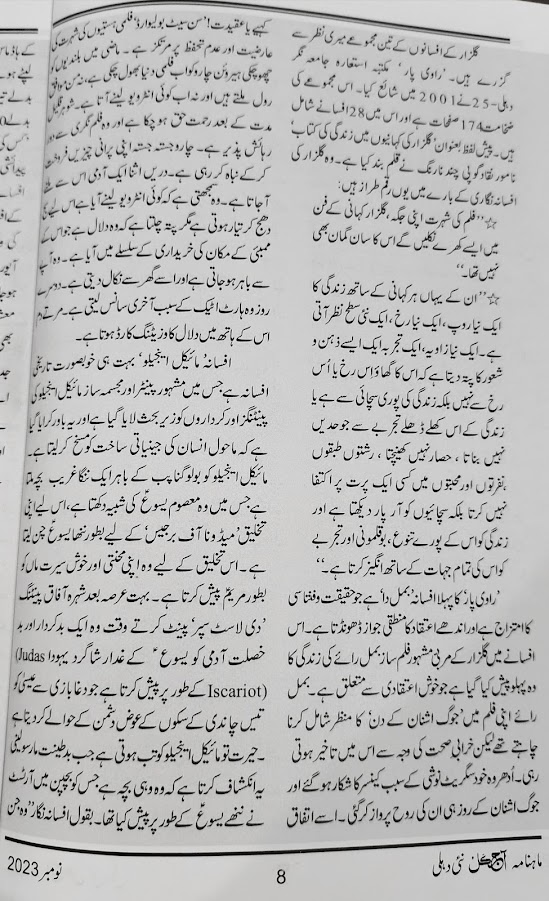 گلزار کے افسانوں کے تین مجموعے میری نظر سے
گزرے ہیں۔ 'راوی پار' مکتبہ استعارہ جامعہ نگر
دہلی-25 نے 2001 میں شائع کیا۔ اس مجموعے کی
ضخامت 174 صفحات ہے اور اس میں 28 افسانے شامل
ہیں۔ پیش لفظ بعنوان 'گلزار کی کہانیوں میں زندگی کی کتاب'
نامور نقاد گوپی چند نارنگ نے قلم بند کیا ہے۔ وہ گلزار کی
افسانہ نگاری کے بارے میں یوں رقم طراز ہیں:
☆ ''فلم کی شہرت اپنی جگہ، گلزار کہانی کے فن
میں ایسے کھرے نکلیں گے اس کا سان گمان بھی
نہیں تھا۔''
☆ ''ان کے یہاں ہر کہانی کے ساتھ زندگی کا
ایک نیا روپ، ایک نیا رخ، ایک نئی سطح نظر آتی
ہے۔ ایک نیا زاویہ، ایک تجربہ ایک ایسے ذہن و
شعور کا پتہ دیتا ہے کہ اس کا گھاؤ اس رخ یا اُس
رخ سے نہیں بلکہ زندگی کی پوری سچائی سے ہے یا
زندگی کے اس کھلے ڈھلے تجربے سے جو حدیں
نہیں بناتا، حصار نہیں کھینچتا، رشتوں طبقوں
نفرتوں اور محبتوں میں کسی ایک پرت پر اکتفا
نہیں کرتا بلکہ سچائیوں کو آر پار دیکھتا ہے اور
زندگی کو اس کے پورے تنوع، بوقلمونی اور تجربے
کو اس کی تمام جہات کے ساتھ انگیز کرتا ہے۔''
'راوی پار' کا پہلا افسانہ 'بمل دا' ہے جو حقیقت و فنتاسی
کا امتزاج ہے اور اندھے اعتقاد کا منطقی جواز ڈھونڈتا ہے۔ اس
افسانے میں گلزار کے مربی مشہور فلم ساز بمل رائے کی زندگی کا
وہ پہلو پیش کیا گیا ہے جو خوش اعتقادی سے متعلق ہے۔ بمل
رائے اپنی فلم میں 'جوگ اشنان کے دن' کا منظر شامل کرنا
چاہتے تھے لیکن خرابی صحت کی وجہ سے اس میں تاخیر ہوتی
رہی۔ اُدھر وہ خود سگریٹ نوشی کے سبب کینسر کا شکار ہو گئے اور
جوگ اشنان کے روز ہی ان کی روح پرواز کر گئی۔ اسے اتفاق
کہیے یا عقیدت! 'سن سیٹ بولیوارڈ' فلمی ہستیوں کی شہرت کی
عارضیت اور عدم تحفظ پر مرتکز ہے۔ ماضی میں بلندیوں کو
چھو چکی ہیروئن چارو کو اب فلمی دنیا بھول چکی ہے، نہ من موافق
رول ملتے ہیں اور نہ اب کوئی انٹرویو لینے آتا ہے۔ شوہر قلیل
مدت کے بعد رحمت حق ہو چکا ہے اور وہ فلم نگری سے دور
رہائش پذیر ہے۔ چارو جستہ جستہ اپنی پرانی چیزیں فروخت
کر کے نباہ کر رہی ہے۔ دریں اثنا ایک آدمی اس سے ملنے
آ جاتا ہے۔ وہ سمجھتی ہے کہ کوئی انٹرویو لینے آیا ہے اس لیے
دھج کر تیار ہوتی ہے مگر پتہ چلتا ہے کہ وہ دلال ہے جو اس کے
ممبئی کے مکان کی خریداری کے سلسلے میں آیا ہے۔ وہ آپا
سے باہر ہو جاتی ہے اور اسے گھر سے نکال دیتی ہے۔ دوسرے
روز وہ ہارٹ اٹیک کے سبب آخری سانس لیتی ہے۔ مرتے دم
اس کے ہاتھ میں دلال کا وزیٹنگ کارڈ ہوتا ہے۔
افسانہ 'مائیکل اینجیلو' بہت ہی خوبصورت تاریخی
افسانہ ہے جس میں مشہور پینٹر اور مجسمہ ساز مائیکل اینجیلو کی
پینٹنگز اور کرداروں کو زیر بحث لایا گیا ہے اور یہ باور کرایا گیا
ہے کہ ماحول انسان کی جینیاتی ساخت کو مسخ کر لیتا ہے۔
مائیکل اینجیلو کو بولوگنا پب کے باہر ایک ننگا غریب بچہ ملتا
ہے جس میں وہ معصوم یسوعؑ کی شبیہ دکھتا ہے، اس لیے اپنی
تخلیق 'میڈونا آف برجیس' کے لیے بطور ننھا یسوعؑ چن لیتا
ہے۔ اس تخلیق کے لیے وہ اپنی محنتی اور خوش سیرت ماں کو
بطور مریمؑ پیش کرتا ہے۔ بہت عرصہ بعد شہرہ آفاق پینٹنگ
'دی لاسٹ سپر' پینٹ کرتے وقت وہ ایک بدکردار اور بد
خصلت آدمی کو یسوعؑ کے غدار شاگرد یہودا (Judas
Iscariot) کے طور پر پیش کرتا ہے جو دغا بازی سے عیسیٰؑ کو
تیس چاندی کے سکوں کے عوض دشمن کے حوالے کر دیتا ہے
۔ حیرت تو مائیکل اینجیلو کو تب ہوتی ہے جب بد طینت مارسولینی
یہ انکشاف کرتا ہے کہ وہ وہی بچہ ہے جس کو بچپن میں آرٹسٹ
نے ننھے یسوعؑ کے طور پر پیش کیا تھا۔ بقول افسانہ نگار ''وہ جن
ماہنامہ آج کل نئی دہلی
8
نومبر 2023